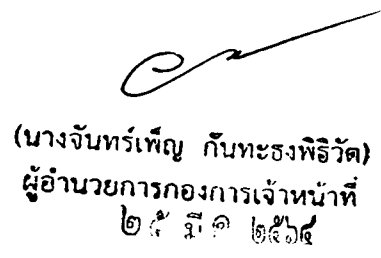 (นางจันทร์เพ็ญ กันทะธงพิธิวัด)
ผู้อำนวยการกองการเจ้าหน้าที่
๒๕ มี ค ๒๕๖๔